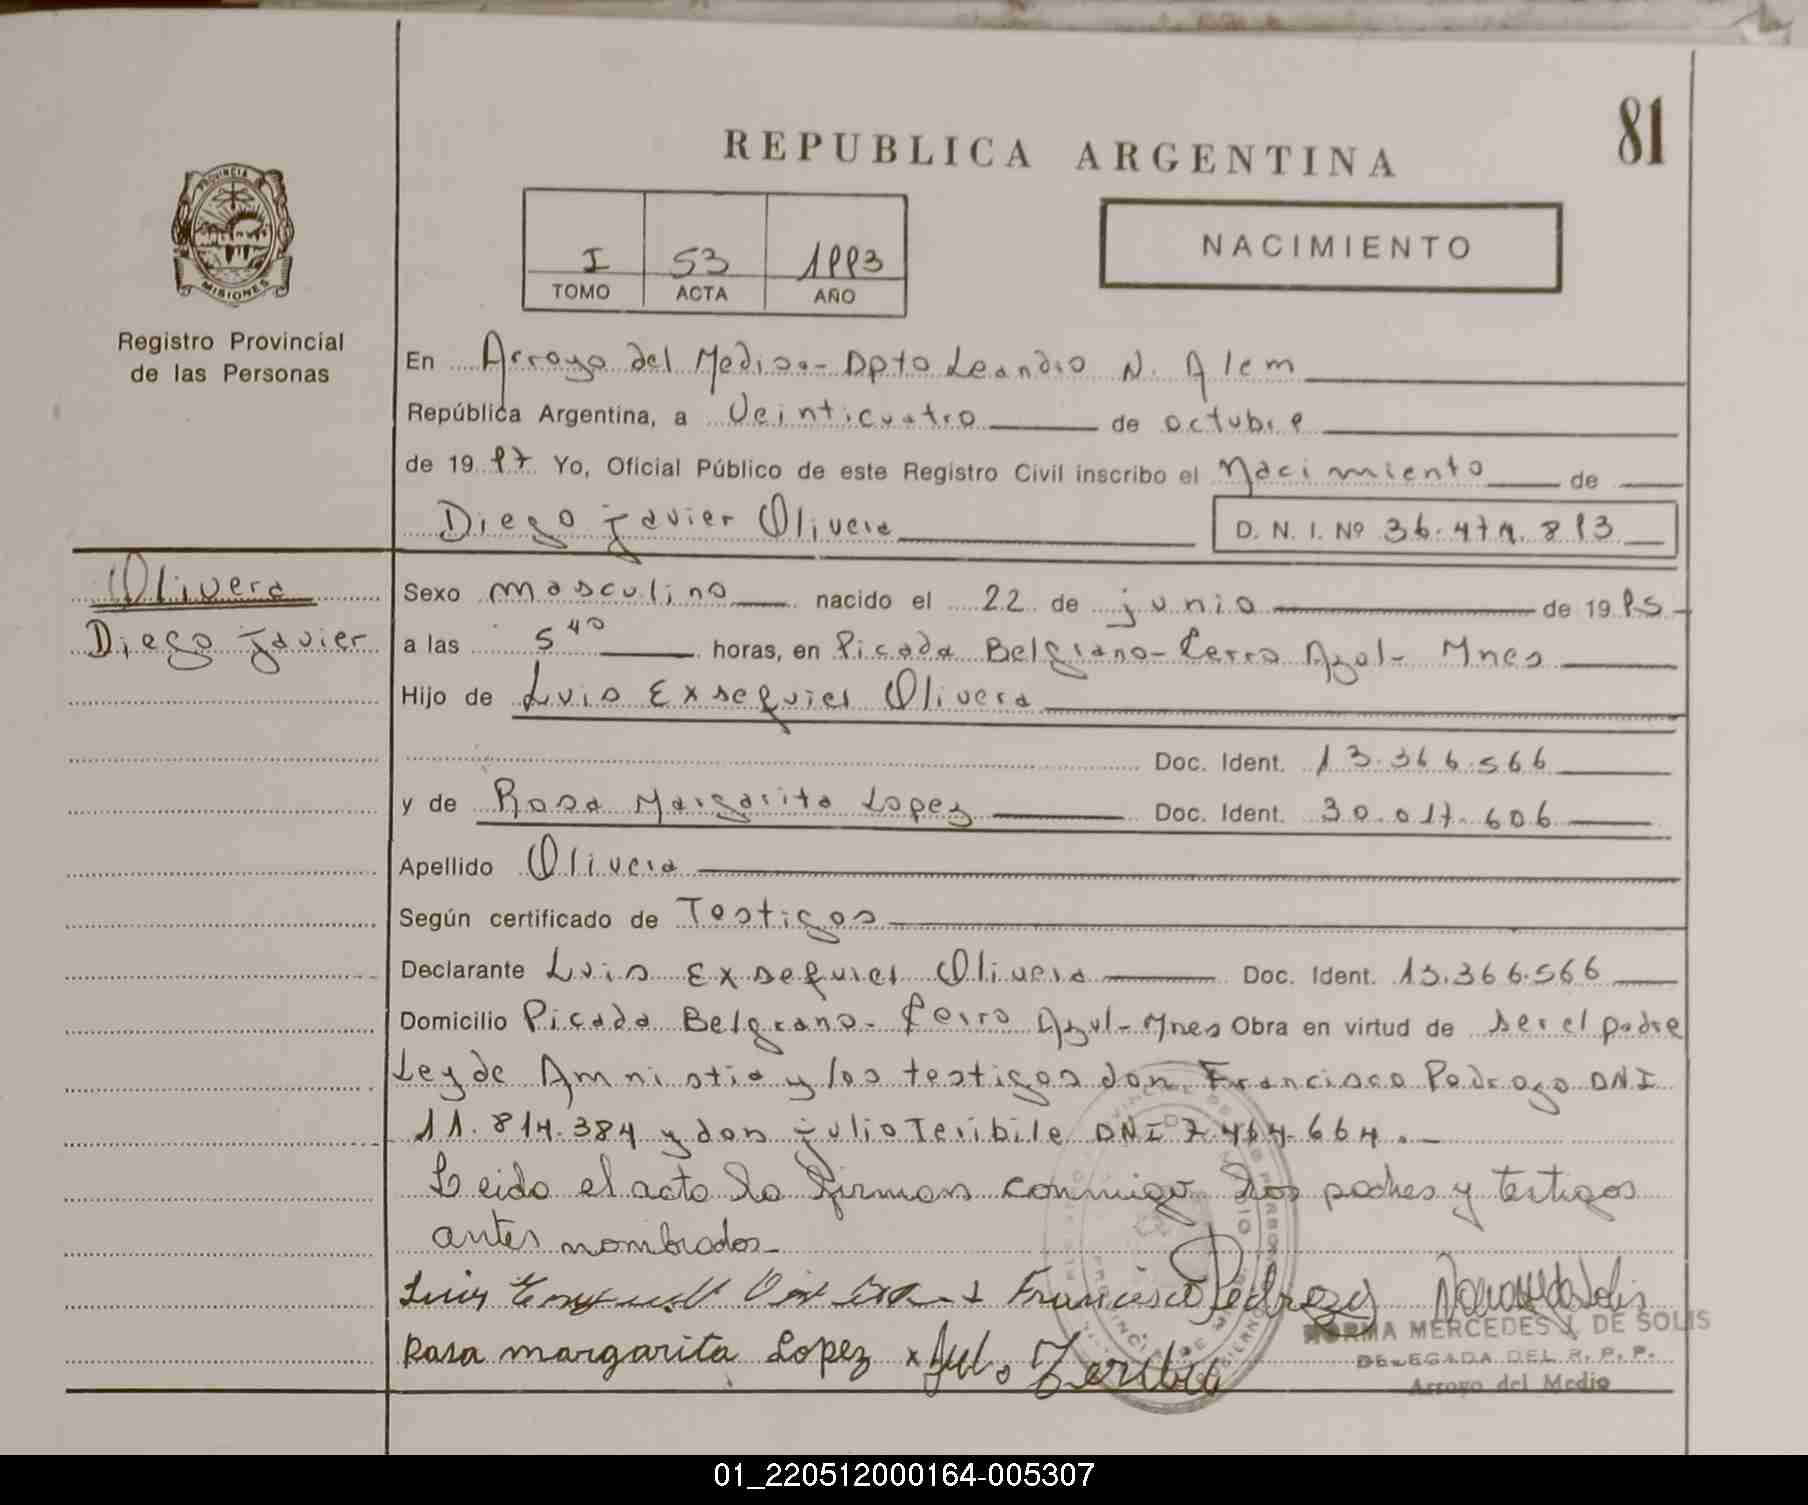 81
REPUBLICA ARGENTINA
PROVINCIA
MISIONES
Registro Provincial
de las Personas
I 53 1993
TOMO ACTA AÑO
NACIMIENTO
En Arroyo del Medio.- Dpto Leandro N. Alem
República Argentina, a Veinticuatro de octubre
de 19 97 Yo, Oficial Público de este Registro Civil inscribo el Nacimiento de
Diego Javier Olivera D. N. I. Nº
Olivera
Diego Javier
Sexo masculino nacido el 22 de junio de 19
a las 5 40 horas, en Picada Belgrano- Cerro Azul- Mnes
Hijo de Luis Exsequiel Olivera
Doc. Ident. 13.366.566
y de Rosa Margarita Lopez Doc. Ident. 30.017.606
Apellido Olivera
Según certificado de Testigos
Declarante Luis Exsequiel Olivera Doc. Ident. 13.366.566
Domicilio Picada Belgrano- Cerro Azul- Mnes Obra en virtud de ser el padre
Ley de Amnistia y los testigos don Francisco Pedrozo DNI
11.814.384 y don Julio Teribile DNI 7.464.664.-
Leido el acto lo firman conmigo los padres y testigos
antes nombrados-
Luis Francisco Pedrozo
Rosa margarita Lopez x
NORMA MERCEDES J. DE SOLIS
DELEGADA DEL R. P. P.
Arroyo del Medio
01_220512000164-005307